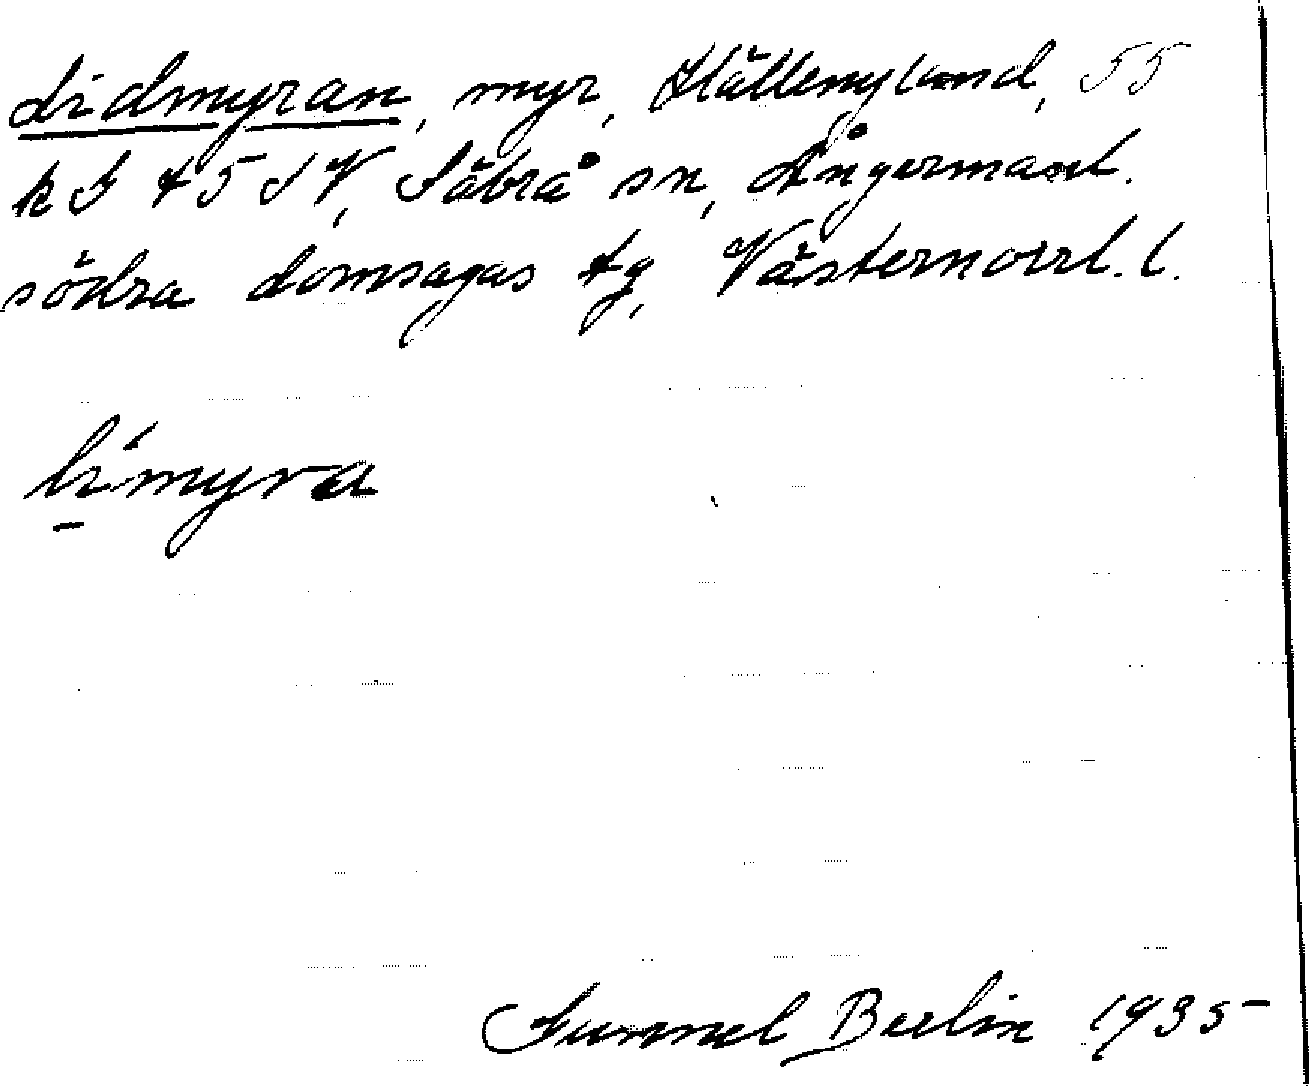 Lidmyran, myr, Hällenyland, 55
k S t 5 S V, Säbrå sn, Ångermanl.
södra domsagas tg, Västernorrl. l.
li´myra
Gunnel Berlin 1935